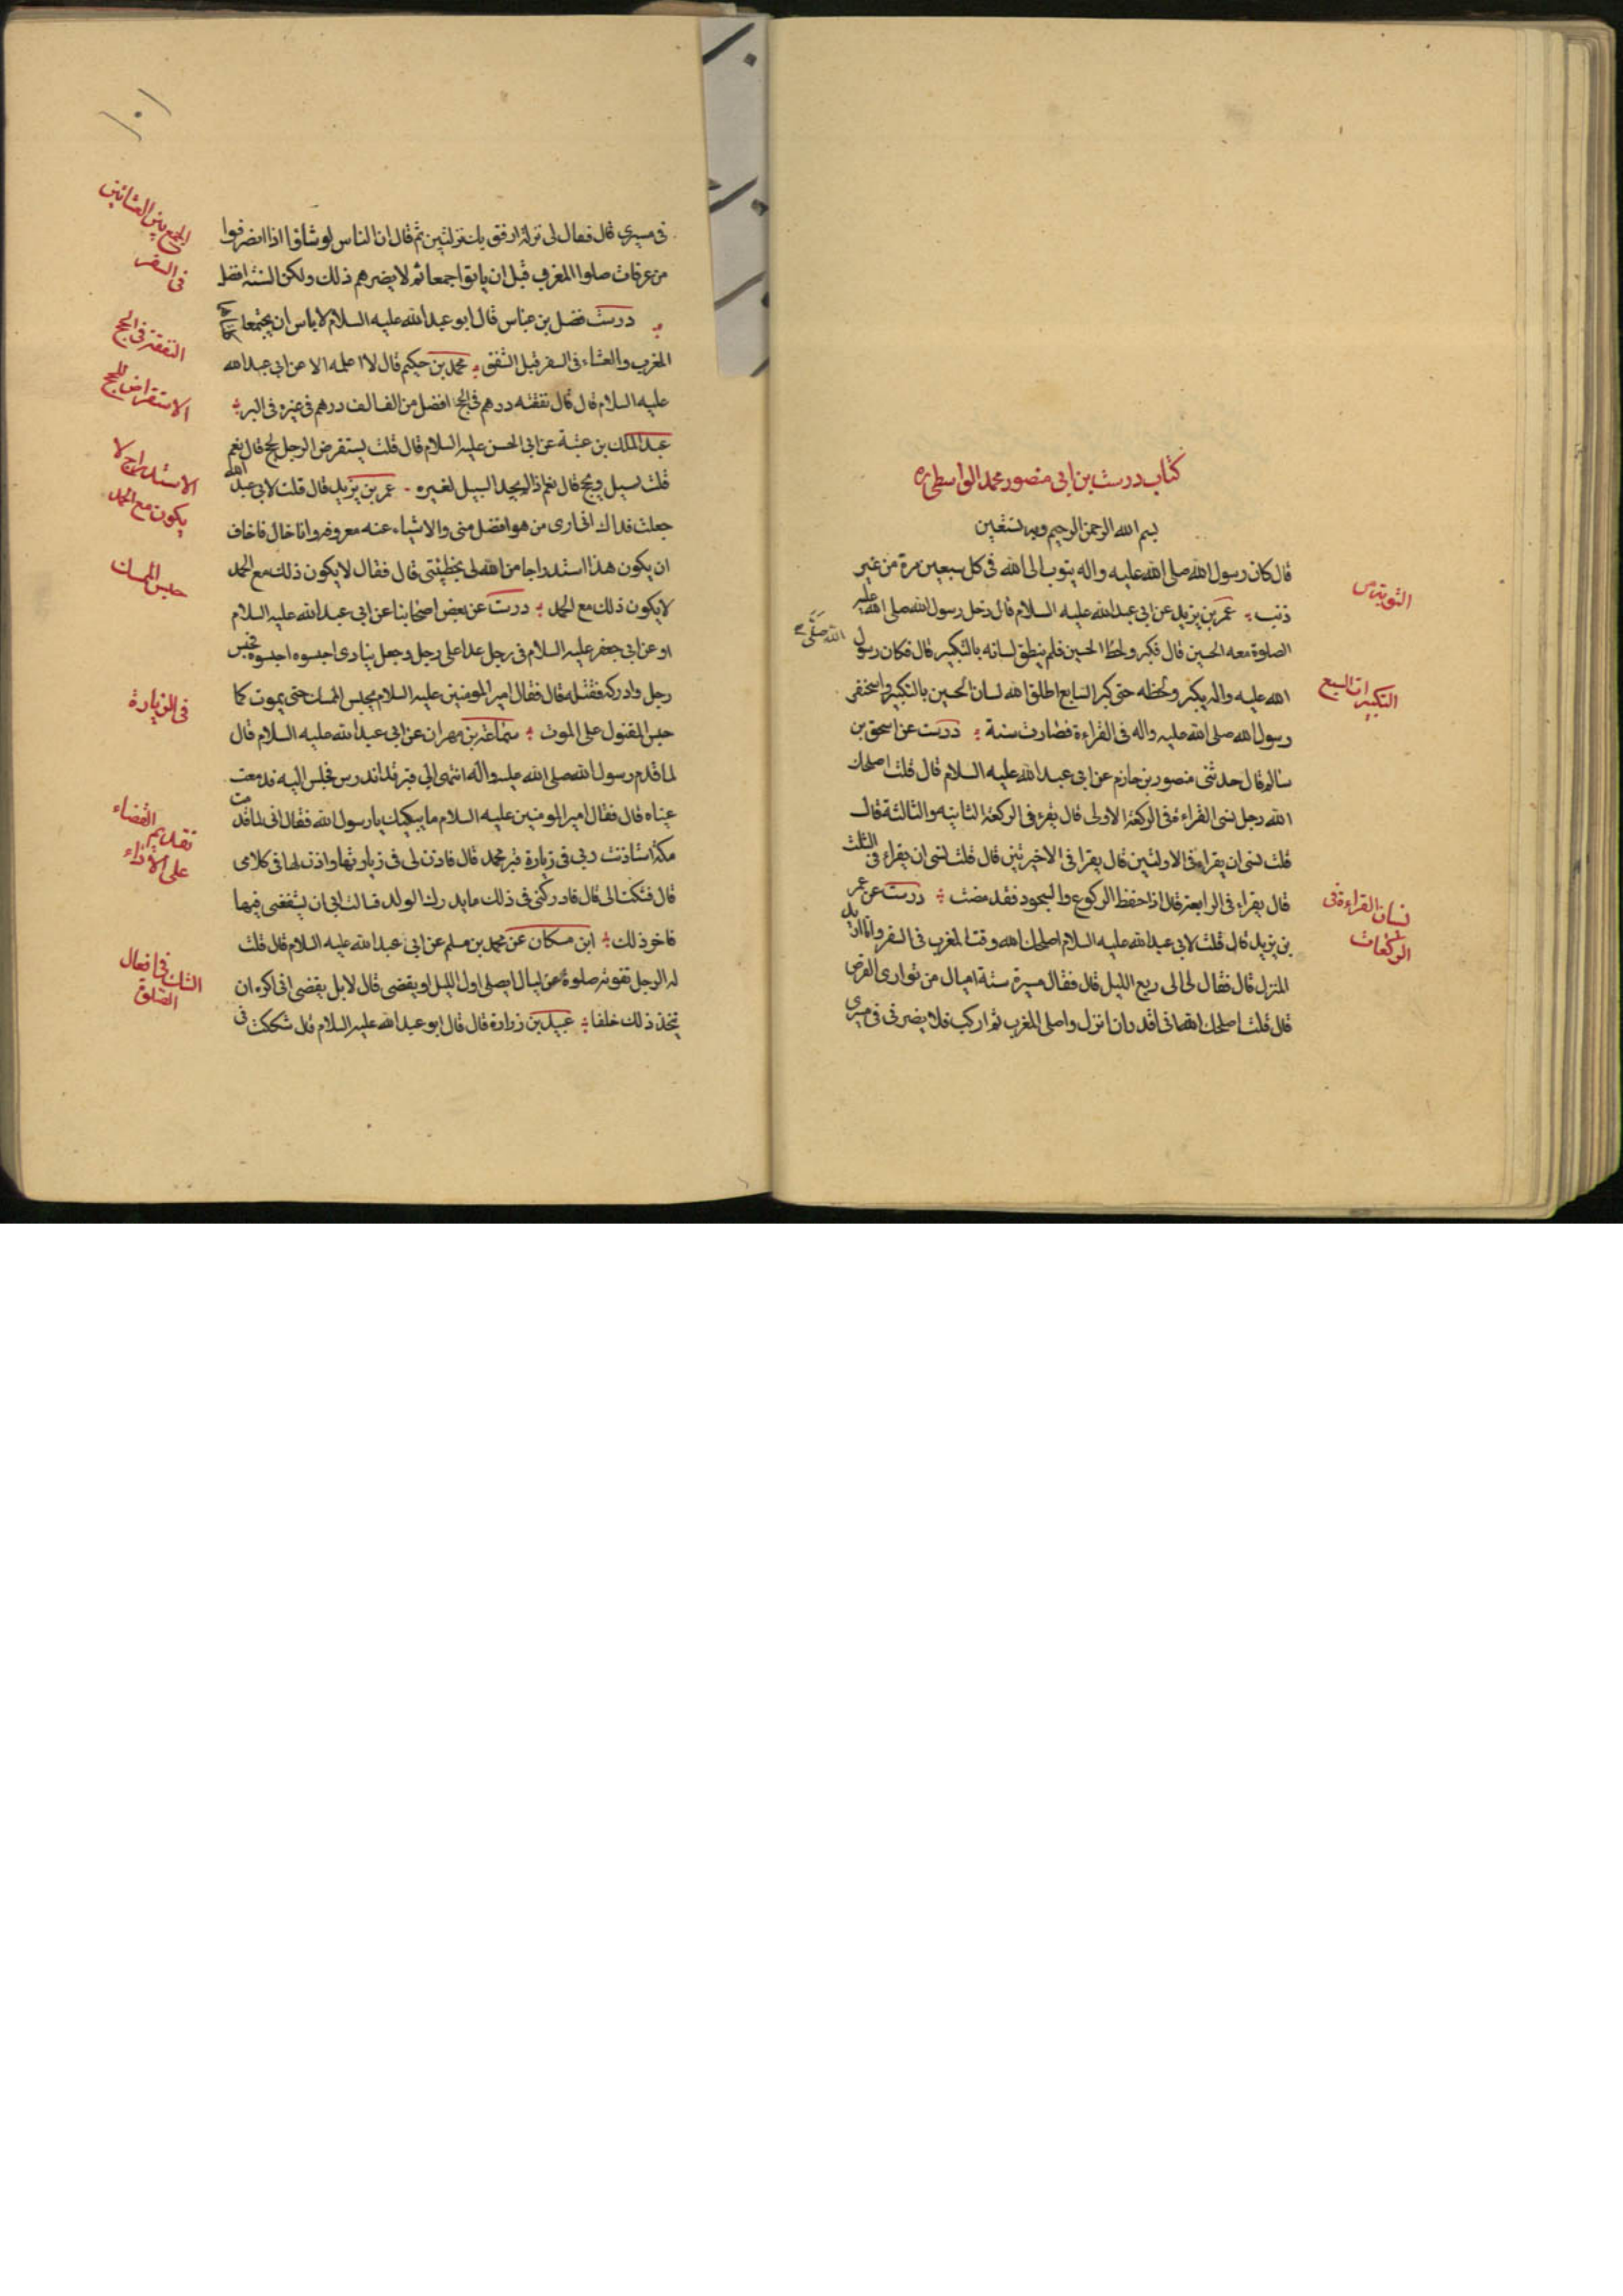 كتاب درست بن ابي منصور محمد الواسطي ره
بسم الله الرحمن الرحيم وبه نستعين
قال كان رسول الله صلى الله عليه واله يتوب الى الله في كل سبعين مرة من غير
ذنب عمر بن يزيد عن ابي عبد الله عليه السلام قال دخل رسول الله صلى الله عليه
الصلوة معه الحسين قال فكبر ولحظ الحسين فلم ينطق لسانه بالتكبير قال فكان رسول
الله صلى
الله عليه واله يكبر ولحظه حتى كبر السابع اطلق الله لسان الحسين بالتكبير واسحنفر
رسول الله صلى الله عليه واله في القراءة فصارت سنة درست عن اسحق بن
سالم قال حدثني منصور بن حازم عن ابي عبد الله عليه السلام قال قلت اصلحك
الله رجل نسى القراءة في الركعة الاولى قال يقرء في الركعة الثانيه والثالثة قال
قلت لنسى ان يقراء في الاولتين قال يقرا في الاخيرتين قال قلت لنسى ان يقراء في الثلث
قال يقراء في الرابعة قال اذا حفظ الركوع والسجود فقد مضت درست عن عمر
بن يزيد قال قلت لابي عبد الله عليه السلام اصلحك الله وقت المغرب في السفر وانا اريد
المنزل قال فقال لي الى ربع الليل قال فقال مسيرة ستة اميال من توارى القرص
قال قلت اصلحك الله اني اقدر ان انزل واصلى المغرب ثم اركب فلا يضرني في مسيري
التوبة
التكبيرات السبع
نسيان القراءة في
الركعات
١٠١
في مسيري قال فقال لي نزلة ارفق بك من نزلتين ثم قال ان الناس لو شاؤا اذا انصرفوا
من عرفات صلوا المغرب قبل ان ياتوا جمعا ثم لا يضرهم ذلك ولكن السنة افضل
درست فضل بن عباس قال ابو عبد الله عليه السلام لا باس ان يجتمعا
المغرب والعشاء في السفر قبل الشفق محمد بن حكيم قال لا اعلمه الا عن ابي عبد الله
عليه السلام قال قال نفقة درهم في الحج افضل من الف الف درهم في غيره في البر
عبد الملك بن عتبة عن ابي الحسن عليه السلام قال قلت يستقرض الرجل يحج قال نعم
قلت يسيل ويحج قال نعم اذا لم يجد السبيل لغيره عمر بن يزيد قال قلت لابي عبد الله
جعلت فداك اني ارى من هو افضل مني والاشياء عنه معروفه وانا خال فاخاف
ان يكون هذا استدراجا من الله لي بخطيئتي قال فقال لا يكون ذلك مع الحمد
لا يكون ذلك مع الحمد درست عن بعض اصحابنا عن ابي عبد الله عليه السلام
او عن ابي جعفر عليه السلام في رجل عدا على رجل وجعل ينادى احبسوه احبسوه فحبس
رجل وادركه فقتله قال فقال امير المومنين عليه السلام يحبس الممسك حتى يموت كما
حبس المقتول على الموت سماعة بن مهران عن ابي عبد الله عليه السلام قال
لما قدم رسول الله صلى الله عليه واله انتهى الى قبر قد اندرس فجلس اليه فدمعت
عيناه قال فقال امير المومنين عليه السلام ما يبكيك يا رسول الله فقال اني لما قدمت
مكة استاذنت ربي في زيارة قبر محمد قال فاذن لي في زيارتها واذن لها في كلامى
قال فشكت الي قال فادركني في ذلك ما يدرك الولد قال ابي ان يشفعني فيها
فاخر ذلك ابن مسكان عن محمد بن مسلم عن ابي عبد الله عليه السلام قال قلت
له الرجل تفوته صلوة من ليال ايصلى اول الليل او يقضى قال لا بل يقضى اني اكره ان
يتخذ ذلك خلفا عبيد بن زرارة قال قال ابو عبد الله عليه السلام قال شككت في
الجمع بين العشائين
في السفر
النفقة في الحج
الاستقراض للحج
الاستدراج لا
يكون مع الحمد
حبس الممسك
في الزيارة
تقديم القضاء
على الاداء
الشك في افعال
الصلوة